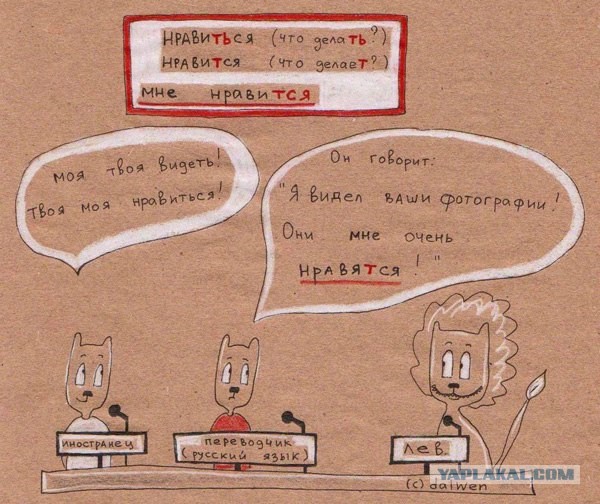 НРАВИТЬСЯ (что делаТЬ?)
НРАВИТСЯ (что делаеТ?)
мне нравиТСЯ
моя твоя видеть!
твоя моя нравиться!
Он говорит:
"Я видел ваши фотографии!
Они мне очень
нравяТся!"
иностранец
переводчик
(русский язык)
Лев
YAPLAKAL.COM
(c) dalwen